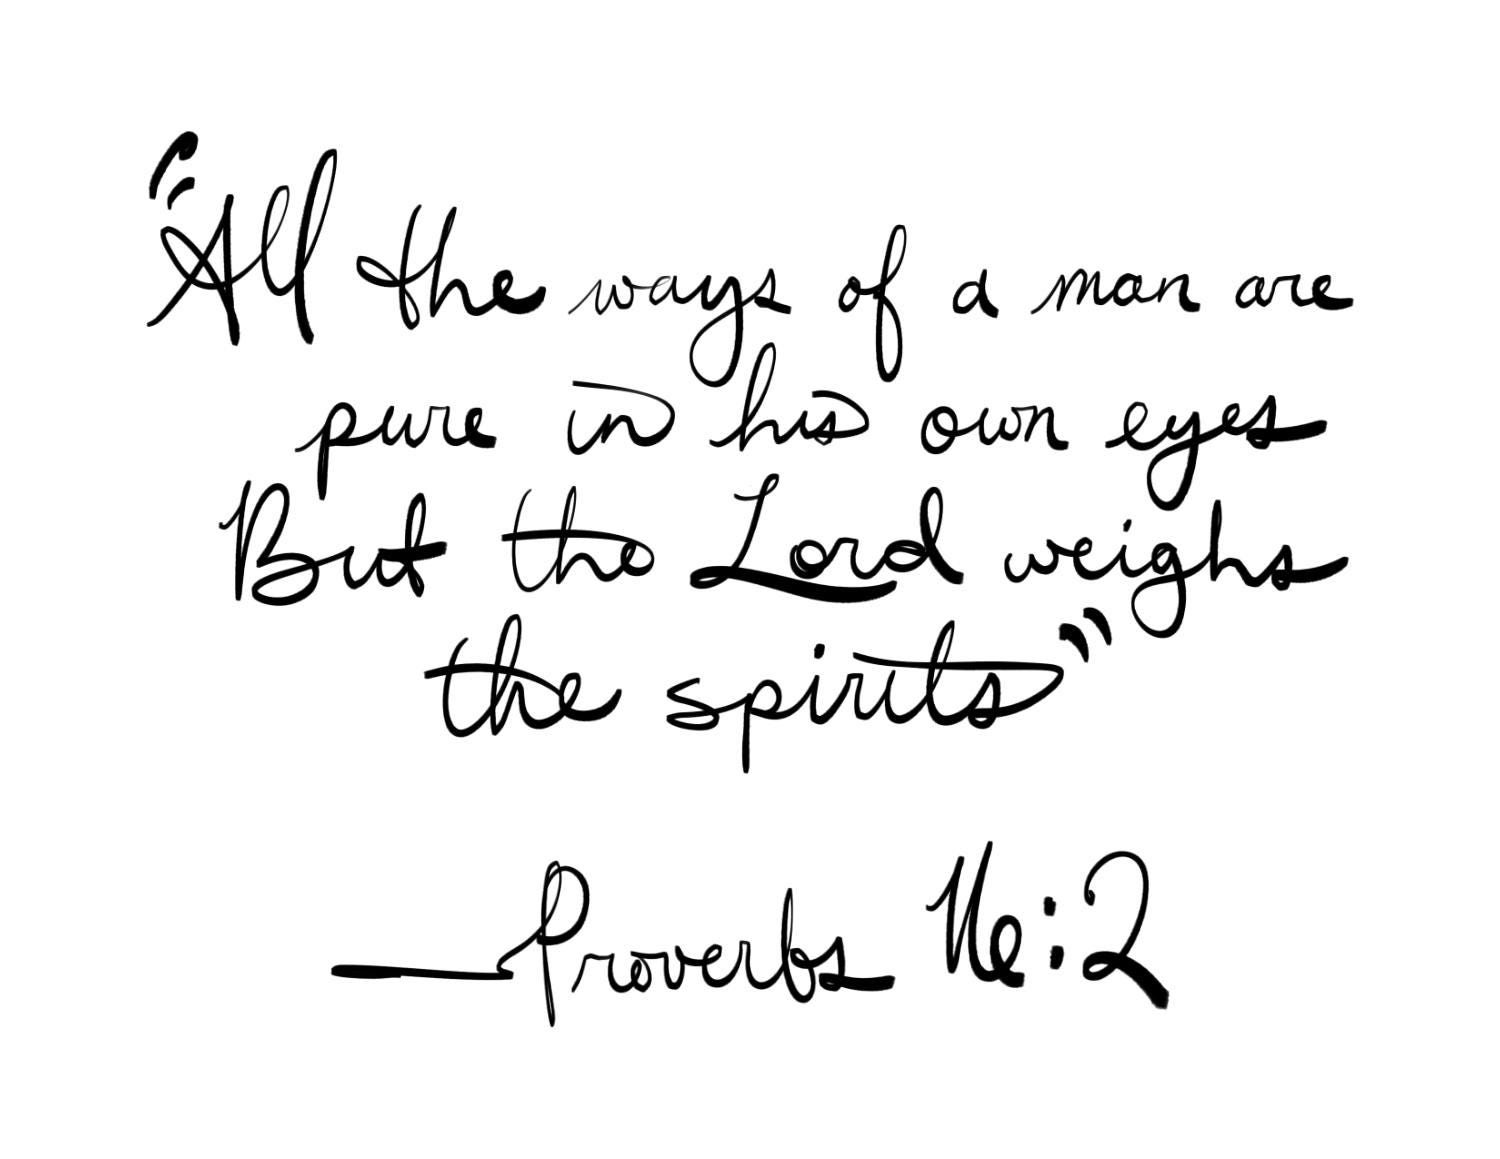 "All the ways of a man are
pure in his own eyes
But the Lord weighs
the spirits"
—Proverbs 16:2